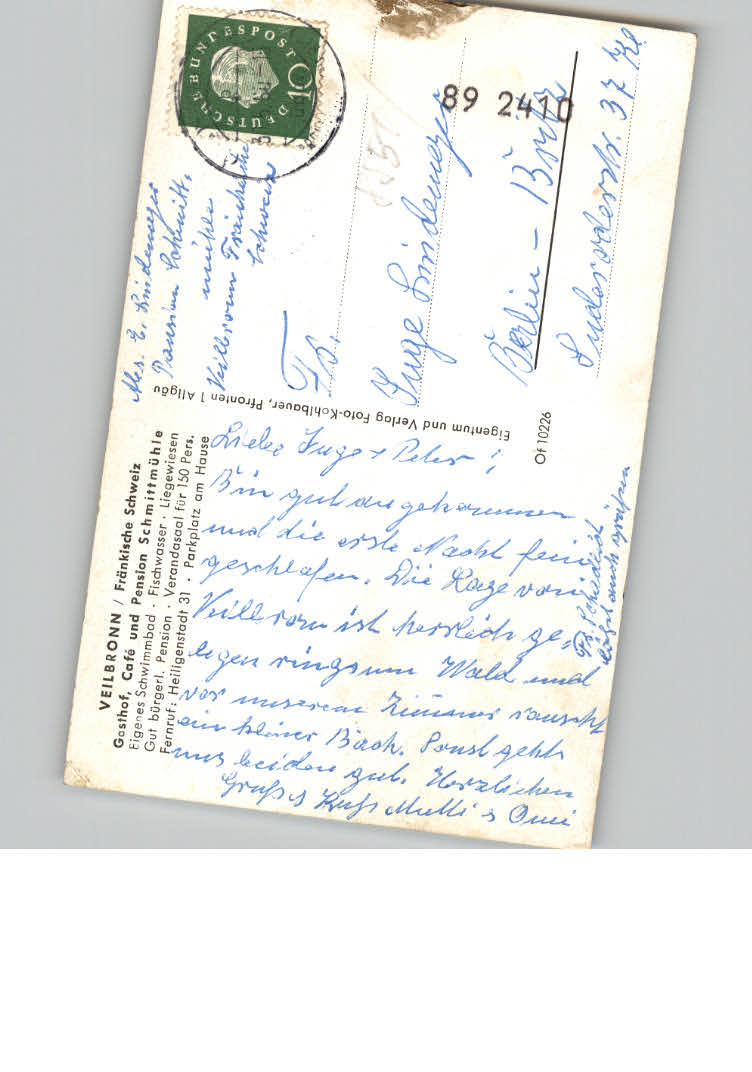 VEILBRONN / Fränkische Schweiz
Gasthof, Café und Pension Schmittmühle
Eigenes Schwimmbad · Fischwasser · Liegewiesen
Gut bürgerl. Pension · Verandasaal für 150 Pers.
Fernruf: Heiligenstadt 31 · Parkplatz am Hause
Liebe Inge + Peter!
Bin gut angekommen
und die erste Nacht fein
geschlafen. Die Lage von
Veilbronn ist herrlich ge-
legen ringsum Wald und
vor unserem Zimmer rauscht
ein kleiner Bach. Sonst geht
uns beiden gut. Herzlichen
Gruß & Kuß Mutti & Omi
Fr.
läßt auch grüßen
Eigentum und Verlag Foto-Kohlbauer, Pfronten 1 Allgäu
Of 10226
DEUTSCHE BUNDESPOST
10
Abs. E. Lindemeyer
Pension Schmitt-
mühle
Veilbronn Fränkische
Schweiz
89 2410
Fr.
Inge Lindemeyer
Berlin - Britz
37